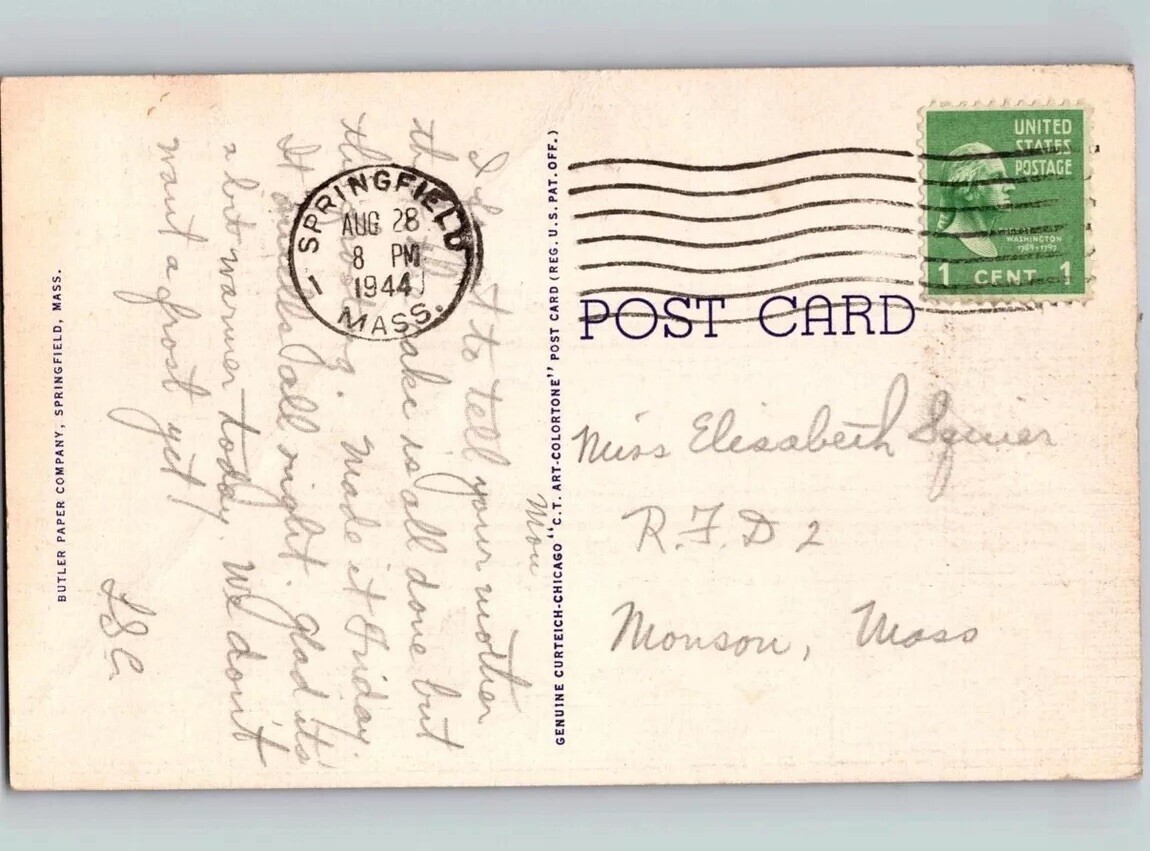 UNITED
STATES
POSTAGE
WASHINGTON
1789-1797
1 CENT 1
SPRINGFIELD
AUG 28
8 PM
1944
1
MASS.
POST CARD
Miss Elisabeth Squier
R.F.D 2
Monson, Mass
GENUINE CURTEICH-CHICAGO "C.T. ART-COLORTONE" POST CARD (REG. U.S. PAT. OFF.)
Mon
I to tell your mother
the cake is all done but
the . Made it Friday.
It smells all right. Glad it's
a bit warmer today. We don't
want a frost yet!
BUTLER PAPER COMPANY, SPRINGFIELD, MASS.